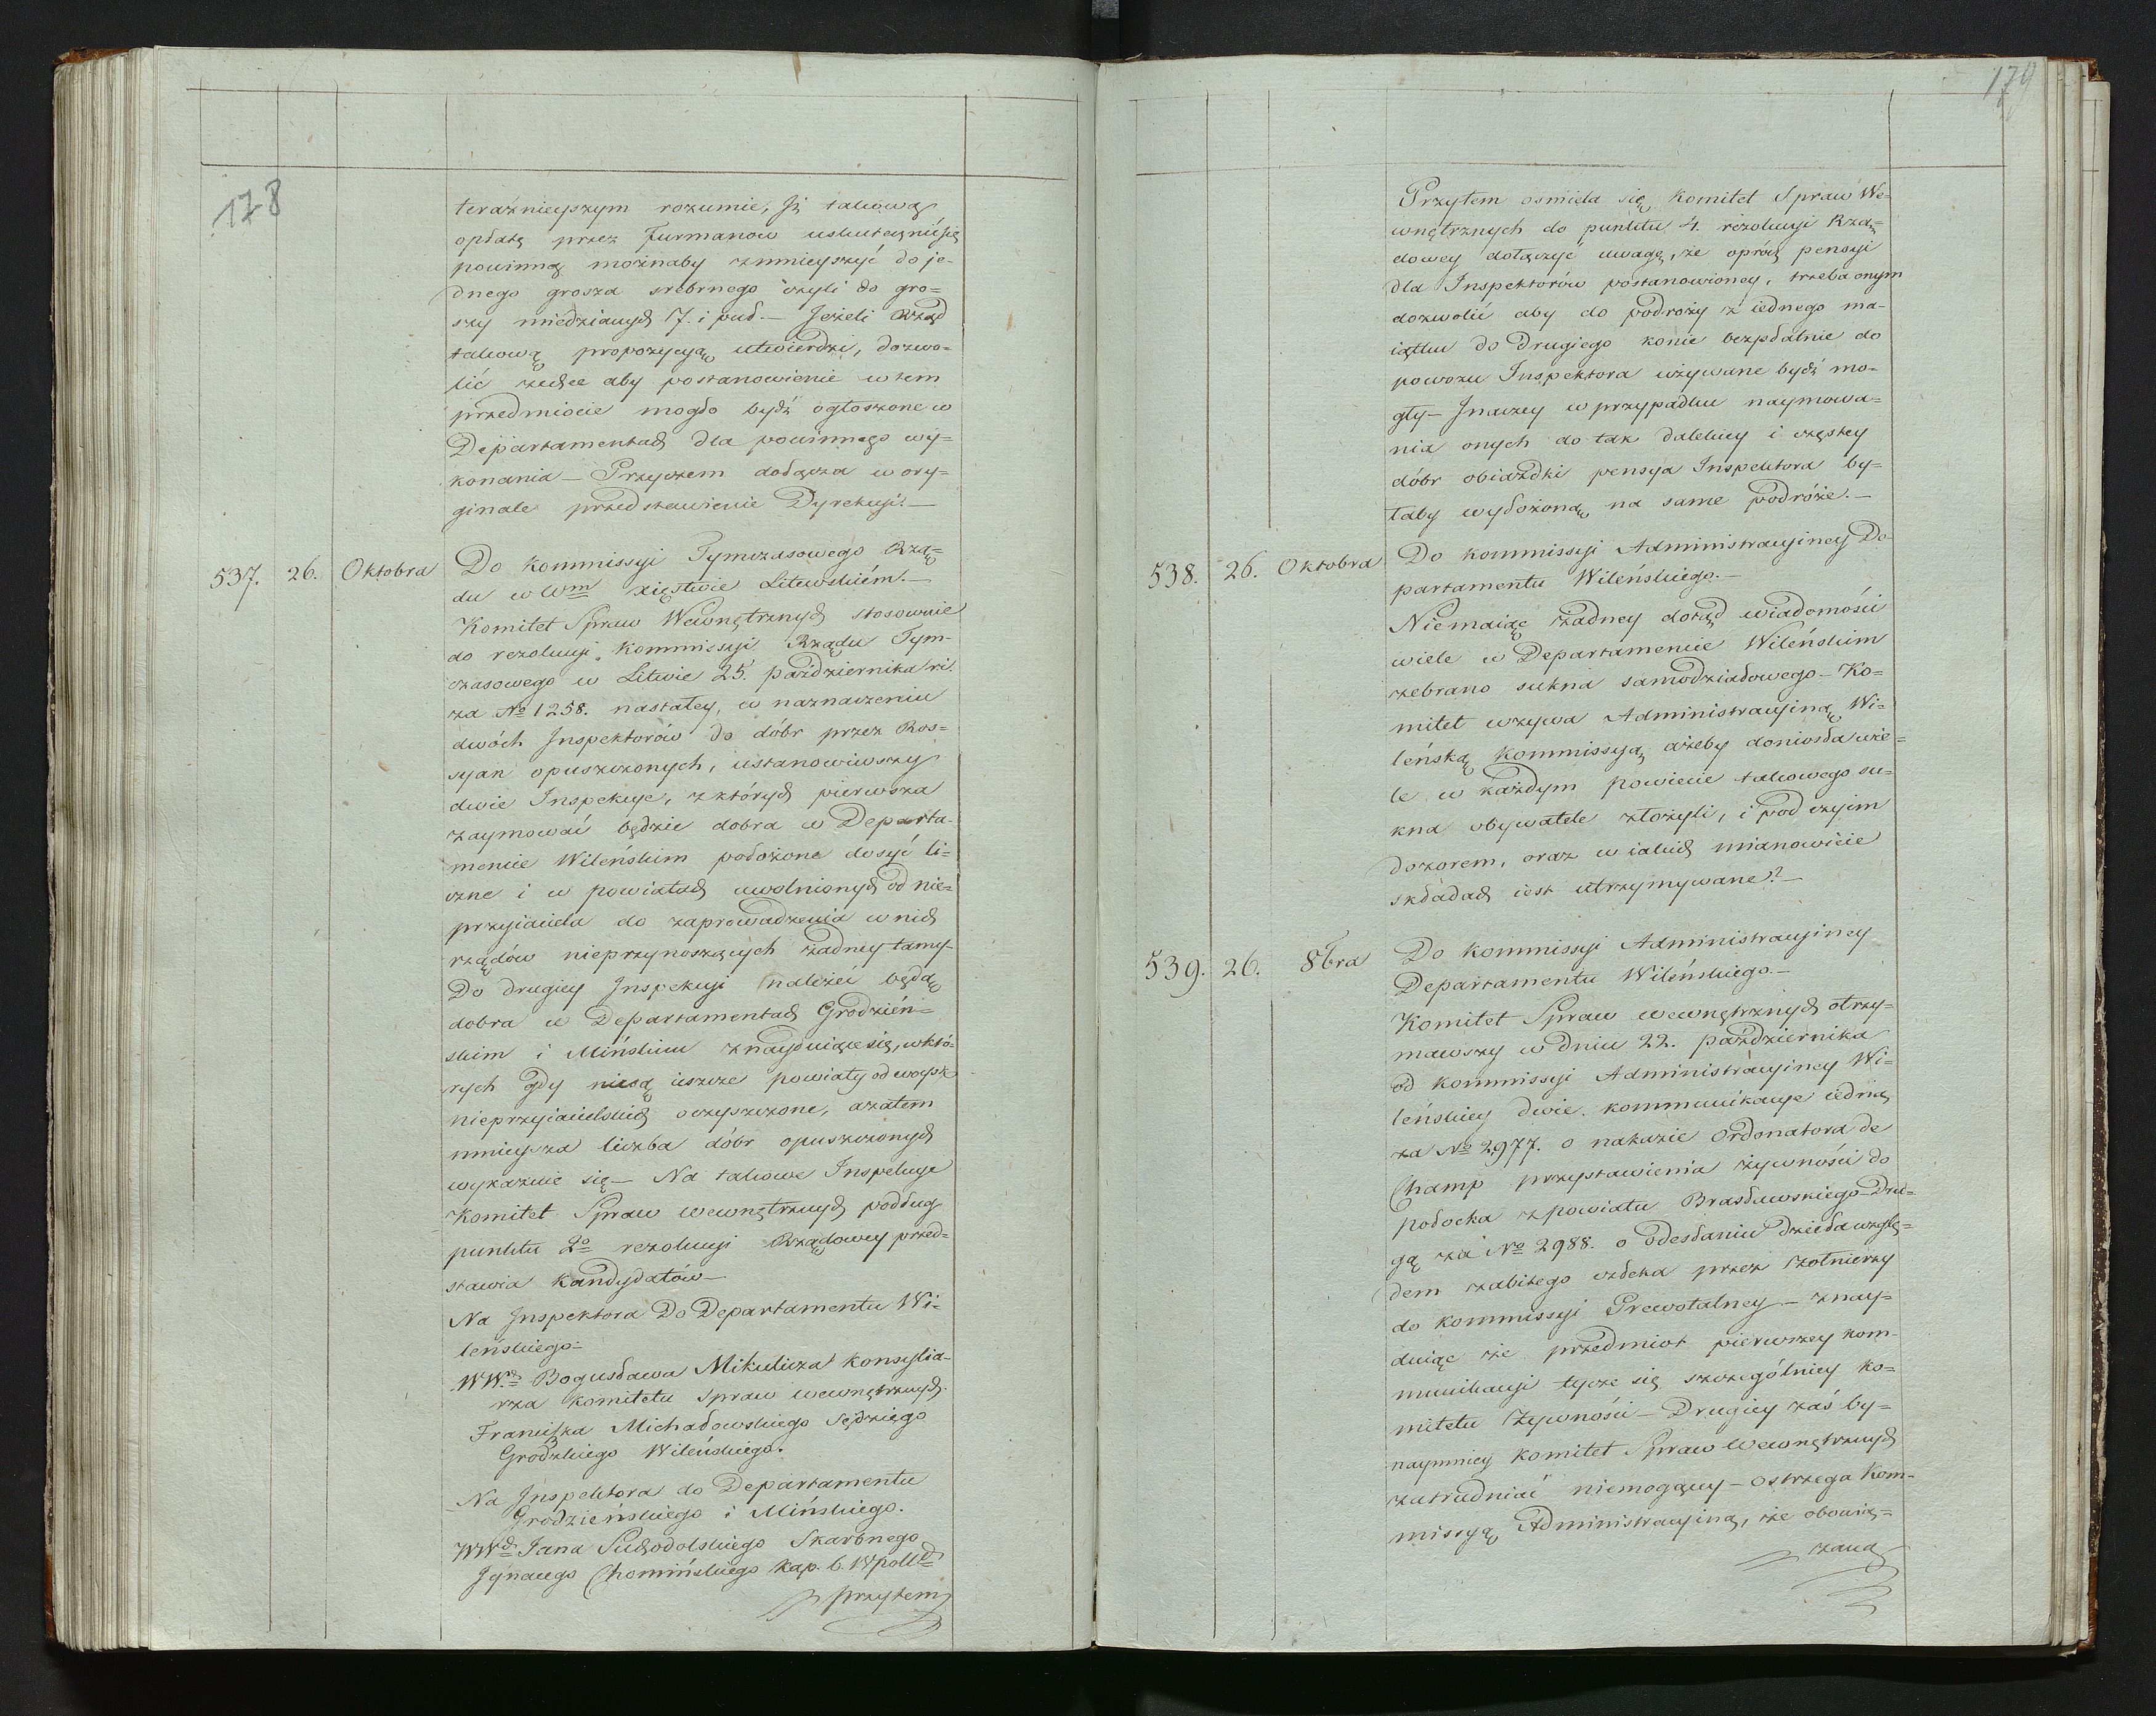 178
teraźnieyszym rozumie, Jż takową
opłatę przez Furmanow uskutecznić się
powinną możnaby zmnieyszyć do je-
dnego grosza srebrnego czyli do gro-
szy miedzianych 7. i puł. — Jeżeli Rząd
takową propozycyą utwierdzi, dozwo-
lić zechce aby postanowienie w tem
przedmiocie mogło bydź ogłoszone w
Departamentach dla powinnego wy-
konania — Przyczem dołącza w ory-
ginale przedstawienie Dyrekcyi. —
537. 26. Oktobra Do Kommissyi Tymczasowego Rzą-
du w Wm Xięstwie Litewskiém. —
Komitet Spraw Wewnętrznych stosownie
do rezolucyi Kommissyi Rządu Tym-
czasowego w Litwie 25. października ri
za No 1258. nastałey, w naznaczeniu
dwóch Inspektorów do dóbr przez Ros-
syan opuszczonych, ustanowiwszy
dwie Inspekcye, z których pierwsza
zaymować będzie dobra w Departa-
mencie Wileńskim położone dosyć li-
czne i w powiatach uwolnionych od nie-
przyiaciela do zaprowadzenia w nich
rządów nieprzynoszących żadney tamy —
Do drugiey Inspekcyi należeć będą
dobra w Departamentach Grodzień-
skim i Mińskim znayduiące się, w któ-
rych gdy niesą ieszcze powiaty od woysk
nieprzyiacielskich oczyszczone, azatem
mnieysza liczba dóbr opuszczonych
wykazuie się — Na takowe Inspekcye
Komitet Spraw wewnętrznych podług
punktu 2o rezolucyi Rządowey przed-
stawia Kandydatów —
Na Inspektora Do Departamentu Wi-
leńskiego —
WWch Bogusława Mikulicza Konsylia-
rza Komitetu Spraw wewnętrznych
Franciszka Michałowskiego Sędziego
Grodzkiego Wileńskiego.
Na Inspektora do Departamentu
Grodzieńskiego i Mińskiego.
WWch Jana Suchodolskiego Skarbnego
Jgnacego Chomińskiego Kap. b. W poll
przytem
179
Przytem ośmiela się Komitet Spraw We-
wnętrznych do punktu 4. rezolucyi Rzą-
dowey dołączyć uwagę, że oprócz pensyi
dla Inspektorów postanowioney, trzeba onym
dozwolić aby do podroży z iednego ma-
iątku do drugiego konie bezpłatnie do
powozu Inspektora używane bydź mo-
gły — Jnaczey w przypadku naymowa-
nia onych do tak dalekiey i częstey
dóbr obiażdki pensya Inspektora by-
łaby wyłożoną na same podróże. —
538. 26. Oktobra Do Kommissyi Administracyiney De-
partamentu Wileńskiego. —
Niemaiąc żadney dotąd wiadomości
wiele w Departamencie Wileńskim
zebrano sukna samodziałowego — Ko-
mitet wzywa Administracyiną Wi-
leńską Kommissyą, ażeby doniosła wie-
le w każdym powiecie takowego su-
kna obywatele złożyli, i pod czyim
dozorem, oraz w iakich mianowicie
składach iest utrzymywane? —
539. 26. 8bra Do Kommissyi Administracyiney
Departamentu Wileńskiego. —
Komitet Spraw wewnętrznych otrzy-
mawszy w dniu 22. października
od Kommissyi Administracyiney Wi-
leńskiey dwie kommunikacye iedną
za No 2977. o nakazie Ordonatora de
Champ przystawienia żywności do
połocka z powiatu Brasławskiego — Dru-
gą za No 2988. o odesłaniu dzieła wzglę-
dem zabitego człeka przez żołnierzy
do Kommissyi Prewotalney — znay-
duiąc że przedmiot pierwszey kom-
munikacyi tycze się szczególniey Ko-
mitetu Żywności — Drugiey zaś by-
naymniey Komitet Spraw Wewnętrznych
zatrudniać niemogący — ostrzega Kom-
missyą Administracyiną, że obowią-
zana